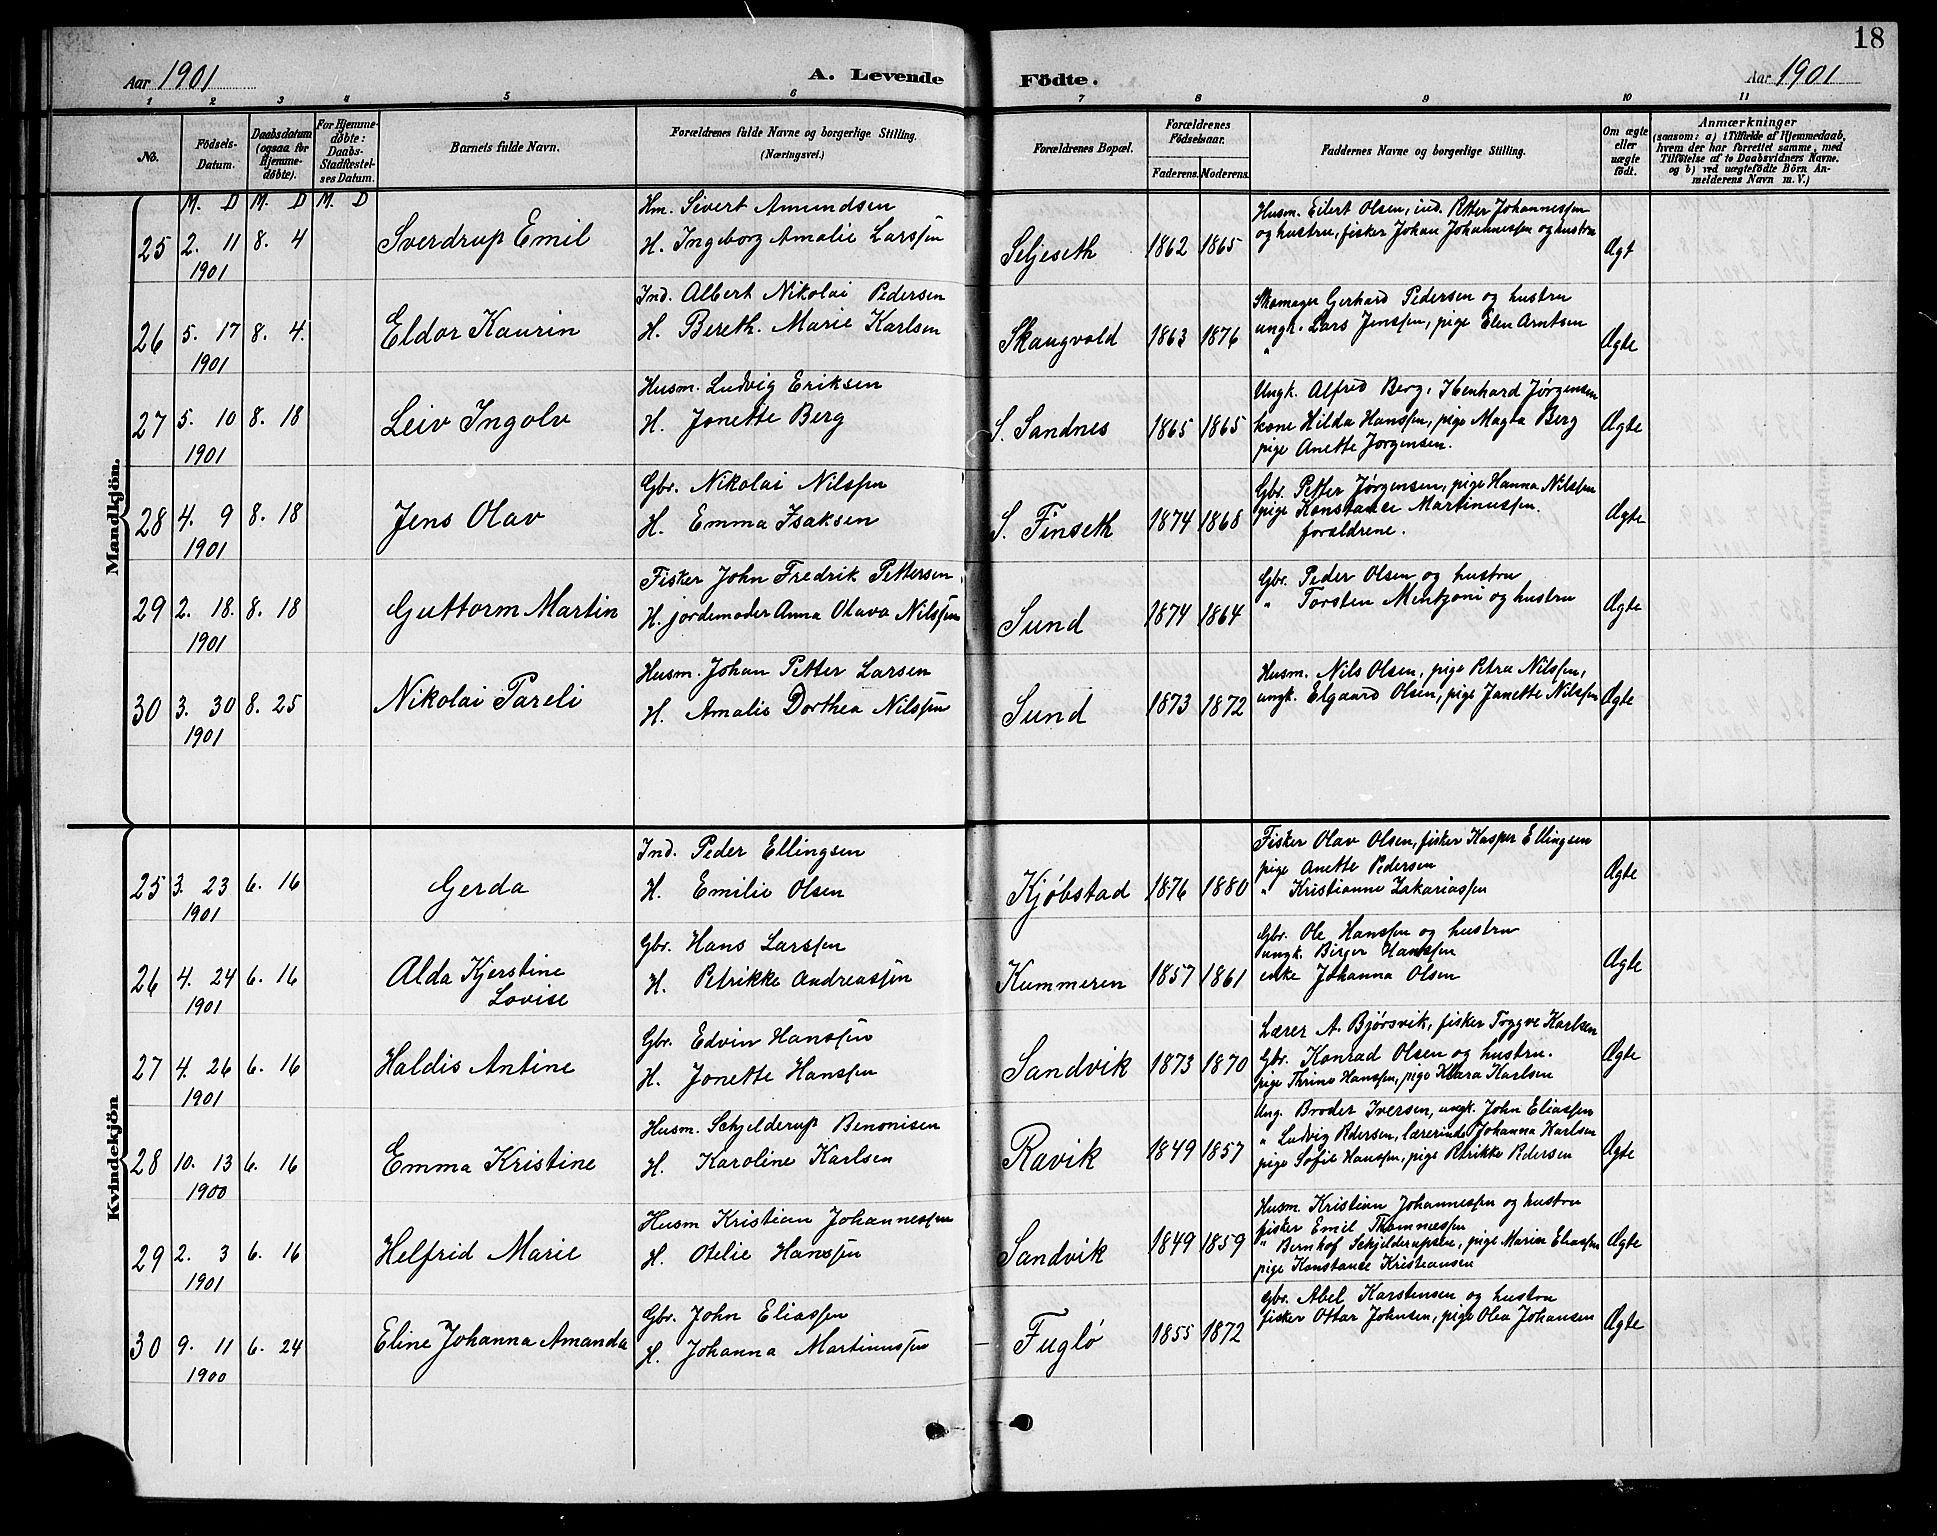 18
Aar 1901 A. Levende Födte. Aar 1901
1 2 3 4 5 6 7 8 9 10 11
No. Födsels-Datum. Daabsdatum (ogsaa for Hjemme-døbte). For Hjemme-døbte: Daabs-Stadfæstel-ses Datum. Barnets fulde Navn. Forældrenes fulde Navne og borgerlige Stilling. (Næringsvei.) Forældrenes Bopæl. Forældrenes Födselsaar. Faderens. Moderens. Faddernes Navne og borgerlige Stilling. Om ægte eller uægte født. Anmærkninger (saasom: a) i Tilfælde af Hjemmedaab, hvem der har forrettet samme, med Tilföielse af to Daabsvidners Navne. og b) ved uægtefödte Börn An-melderens Navn m. V.)
M. D M. D M. D
Mandkjön.
25 2. 11 1901 8. 4 Sverdrup Emil
Hm. Sivert Amundsen
H. Ingeborg Amalie Larssen
Seljeseth 1862 1865
Husm. Eilert Olsen, ind. Petter Johannessen
og hustru, fisker Johan Johannessen og hustru
Ægt
26 5. 17 1901 8. 4. Eldor Kaurin
Ind. Albert Nikolai Pedersen
H. Bereth. Marie Karlsen
Skaugvold 1863 1876
Skomager Gerhard Pedersen og hustru
ungk. Lars Jenssen, pige Elen Arntsen
"
Ægte
27 5. 10 1901 8. 18 Leiv Ingolv
Husm. Ludvig Eriksen
H. Jonette Berg
S. Sandnes 1865 1865
Ungk. Alfred Berg, Henhard Jørgensen
kone Hilda Hanssen, pige Magta Berg
pige Anette Jørgensen.
Ægte
28 4. 9 1901 8. 18 Jens Olav
Gbr. Nikolai Nilssen
H. Emma Isaksen
S. Finseth 1874 1868
Gbr. Petter Jørgensen, pige Hanna Nilssen
pige Konstance Martinussen.
forældrene.
Ægte
29 2. 18. 1901 8. 18 Guttorm Martin
Fisker John Fredrik Pettersen
H. jordemoder Anna Olava Nilssen
Sund 1874 1864
Gbr. Peder Olsen og hustru
" Torsten Mentzoni og hustru
Ægte
30 3. 30 1901 8. 25 Nikolai Pareli
Husm. Johan Petter Larsen
H. Amalie Dorthea Nilssen
Sund 1873 1872
Husm. Nils Olsen, pige Petra Nilssen,
ungk. Elgaard Olsen, pige Janette Nilssen
Ægte
Kvindekjön
25 3. 23 1901 6. 16 Gerda
Ind. Peder Ellingsen
H. Emilie Olsen
Kjøbstad 1876 1880
Fisker Olav Olsen, fisker Kasper Ellingsen
pige Anette Pedersen
" Kristianne Zakariassen
Ægte
26 4. 24 1901 6. 16 Alda Kjerstine Lovise
Gbr. Hans Larssen
H. Petrikke Andreassen
Kummeren 1857 1861
Gbr. Ole Hanssen og hustru
ungk. Birger Hanssen
enke Johanna Olsen
Ægte
27 4. 26 1901 6. 16 Haldis Antine
Gbr. Edvin Hanssen
H. Jonette Hanssen
Sandvik 1873 1870
Lærer A. Bjørsvik, fisker Tryggve Karlsen
Gbr. Konrad Olsen og hustru.
pige Thrine Hanssen, pige Klara Karlsen
Ægte
28 10. 13 1900 6. 16 Emma Kristine
Husm. Schjelderup Benonisen
H. Karoline Karlsen
Ravik 1849 1857
Ung. Broder Iversen, ungk. John Eliassen
" Ludvig Pedersen, lærerinde Johanna Karlsen
pige Sofie Hanssen, pige Petrikke Pedersen
Ægte
29 2. 3 1901 6. 16 Helfrid Marie
Husm Kristian Johannessen
H. Otelie Hanssen
Sandvik 1849 1859
Husm. Kristian Johannessen og hustru
fisker Emil Thomassen
" Bernhof Schjelderupsen, pige Marie Eliassen
pige Konstance Kristiansen
Ægte
30 9. 11 1900 6. 24 Eline Johanna Amanda
Gbr. John Eliassen
H. Johanna Martinussen
Fuglø 1855 1872
Gbr. Abel Karstensen og hustru
fisker Ottar Johnsen, pige Olea Johansen
Ægte